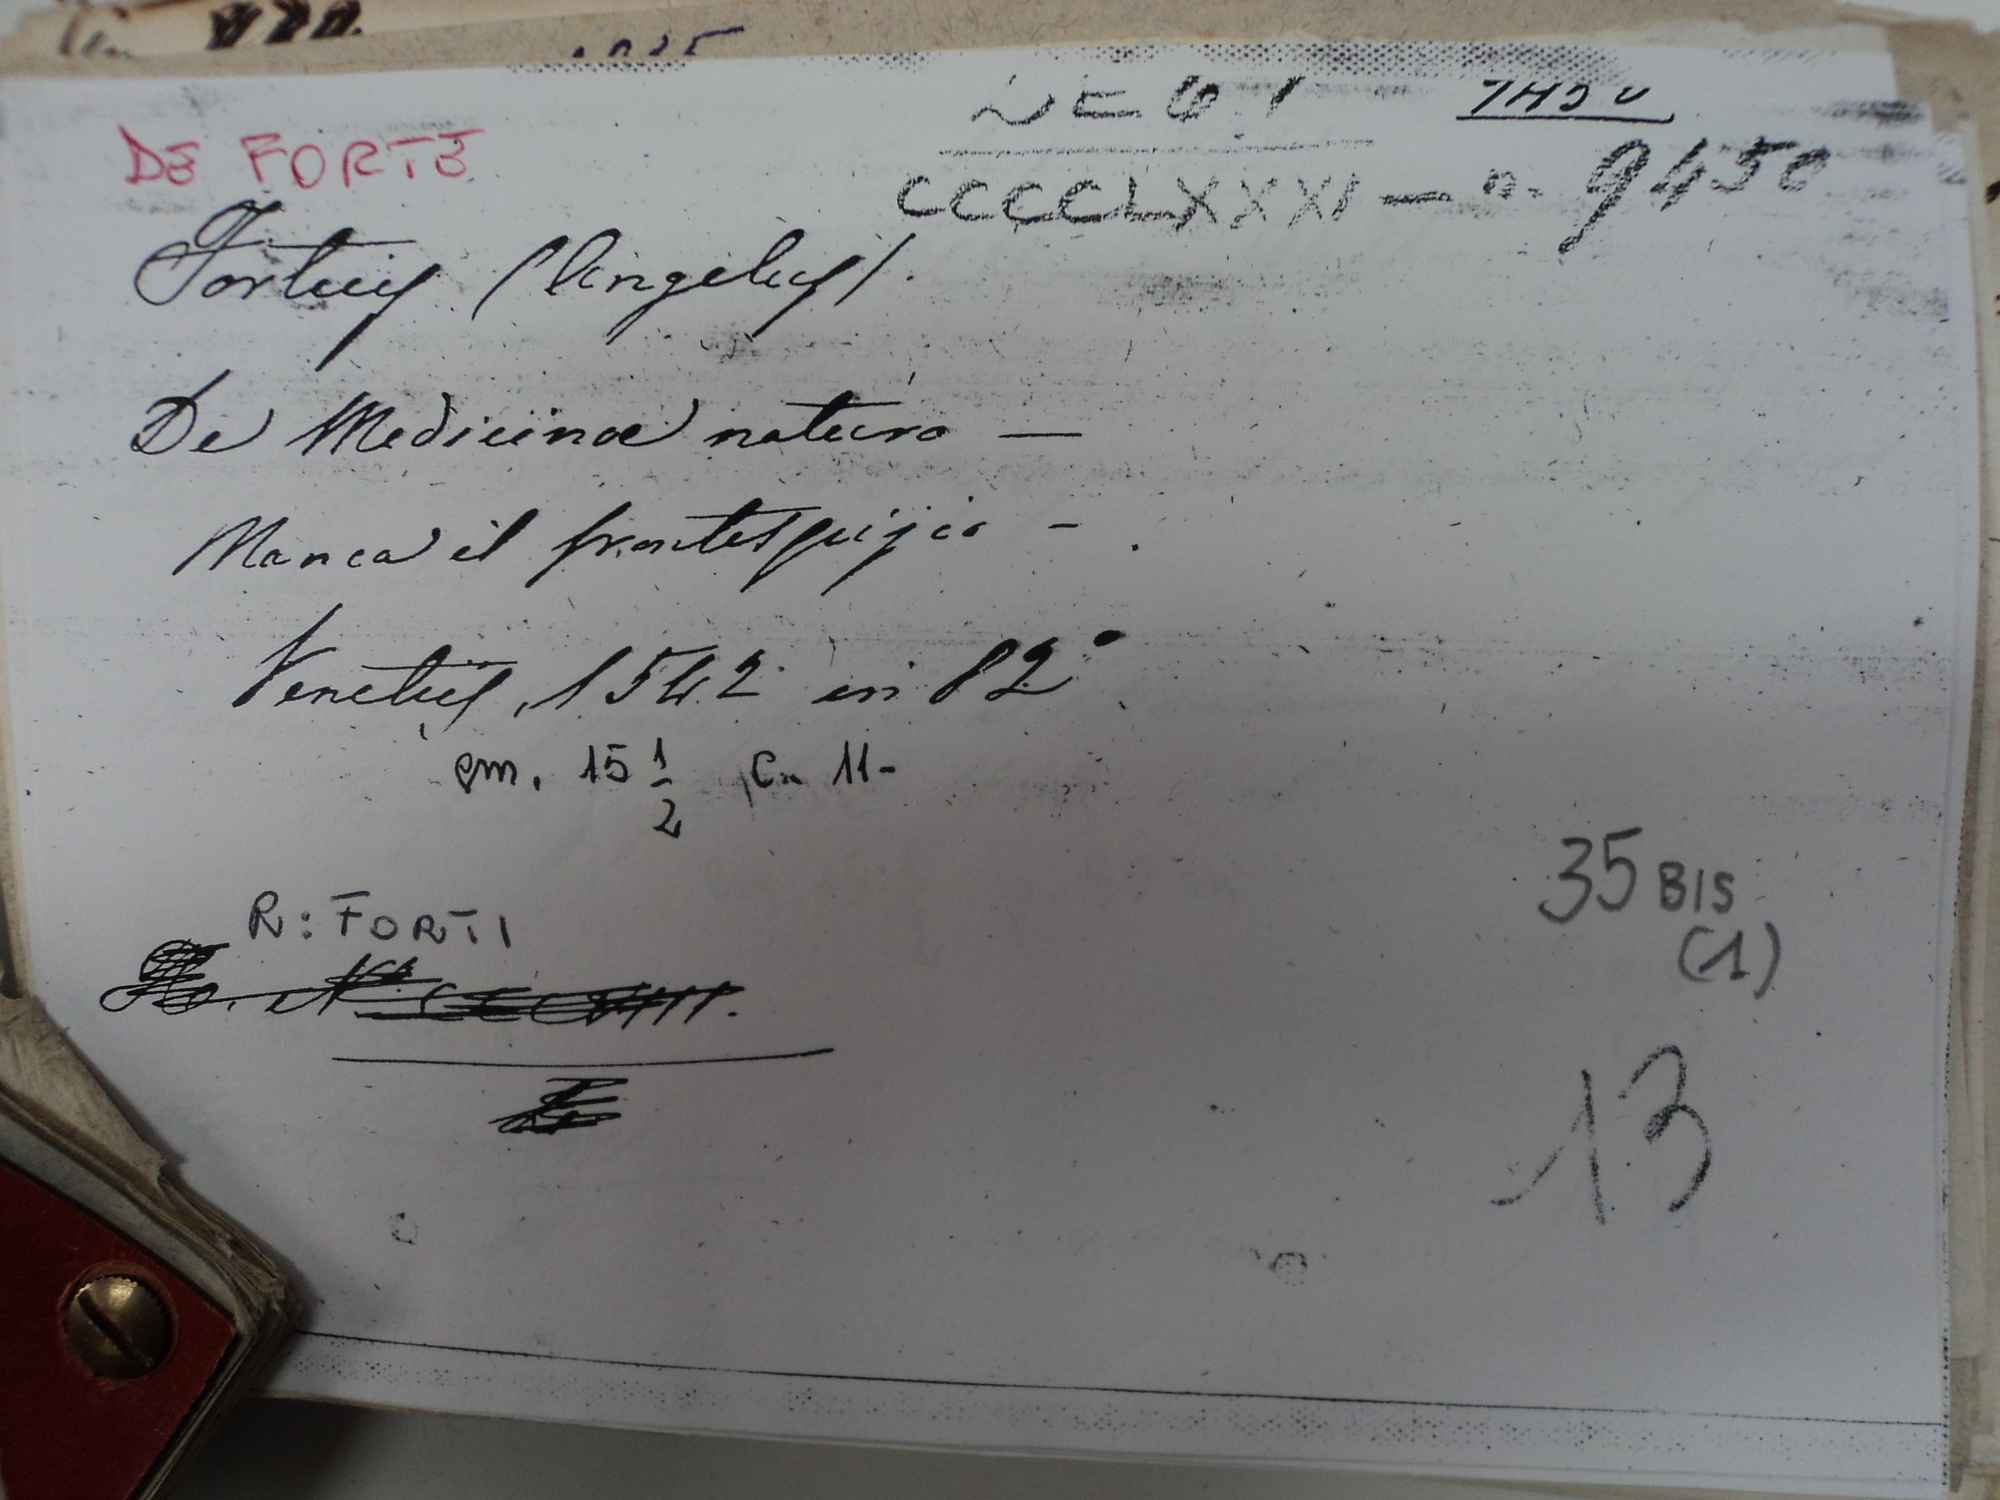 DE FORTE
CCCCLXXXI — n. 9450
Fortius (Angelus).
De Medicinae natura —
Manca il frontespizio —
Venetiis, 1542 in 12°
cm. 15 1/2 c. 11-
R: FORTI
35 BIS
(1)
13